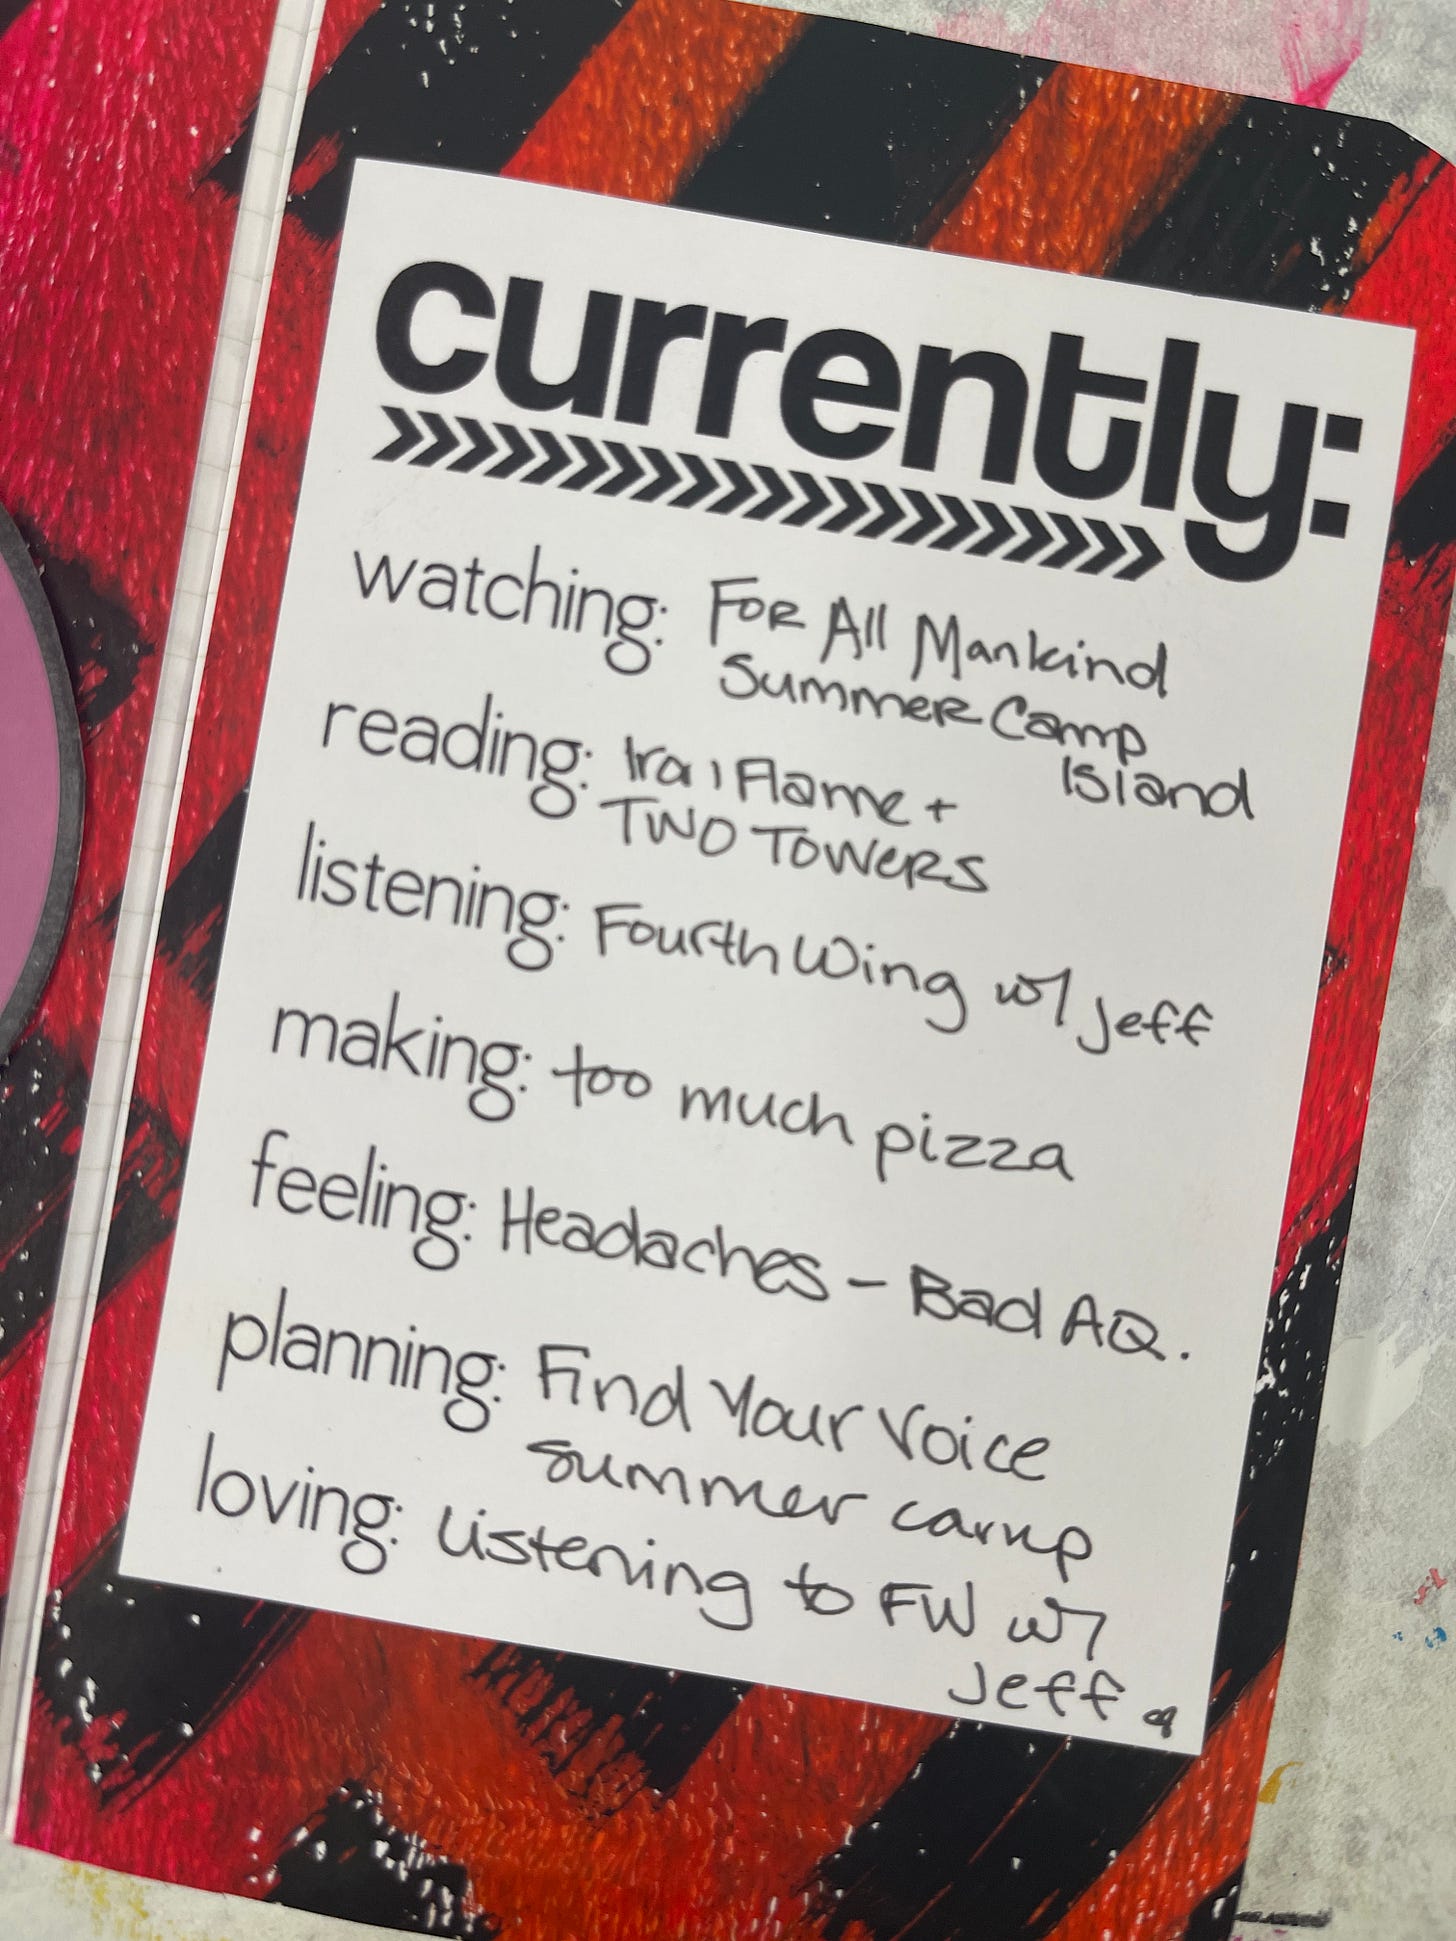 currently:
watching: FOR All Mankind
SUMMER Camp
Island
reading: Iron Flame +
TWO TOWERS
listening: Fourth Wing w/ Jeff
making: too much pizza
feeling: Headaches - Bad AQ.
planning: Find Your Voice
summer camp
loving: Listening to FW w/
Jeff